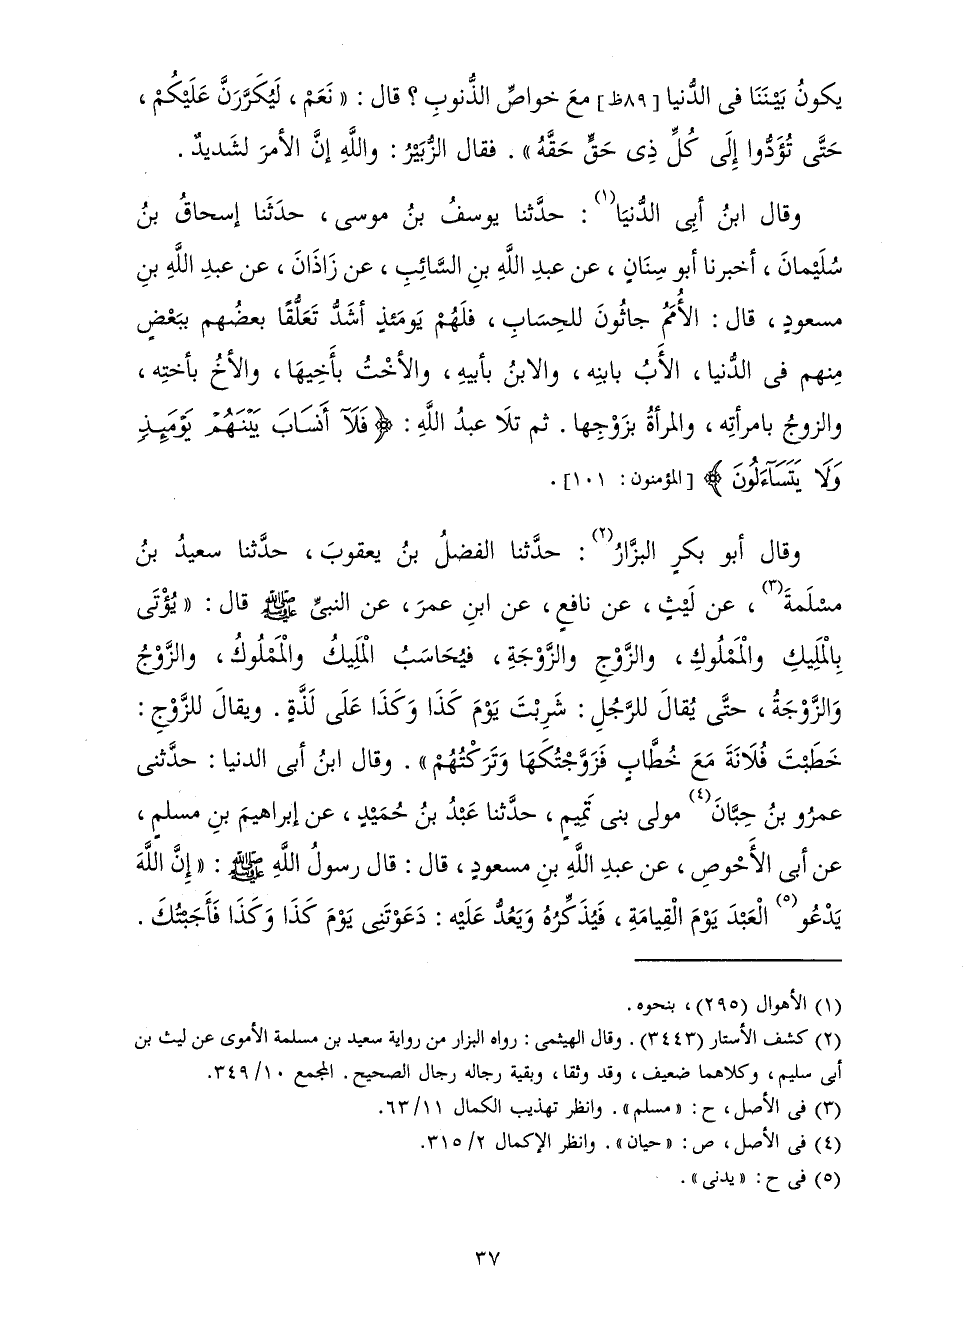 يكونُ بَيْنَنَا فى الدُّنيا [٨٩ظ] معَ خواصِّ الذُّنوبِ ؟ قال : « نَعَمْ ، لَيُكَرَّرَنَّ عَلَيْكُمْ ،
حَتَّى تُؤَدُّوا إِلَى كُلِّ ذِى حَقٍّ حَقَّهُ » . فقال الزُّبَيْرُ : واللَّهِ إنَّ الأمرَ لشَديدٌ .
وقال ابنُ أبِى الدُّنيَا(١) : حدَّثنا يوسفُ بنُ موسى ، حدَثَنا إسحاقُ بنُ
سُلَيْمانَ ، أخبرنا أبو سِنَانٍ ، عن عبدِ اللَّهِ بنِ السَّائِبِ ، عن زَاذَانَ ، عن عبدِ اللَّهِ بنِ
مسعودٍ ، قال : الأُمَمُ جاثُونَ للحِسَابِ ، فلَهُمْ يَومَئذٍ أشَدُّ تَعَلُّقًا بعضُهم ببَعْضٍ
مِنهم فى الدُّنيا ، الأَبُ بابنِه ، والابنُ بأبيهِ ، والأخْتُ بأَخِيهَا ، والأخُ بأختِه ،
والزوجُ بامرأتِه ، والمرأةُ بزَوْجِها . ثم تلَا عبدُ اللَّهِ : ﴿ فَلَآ أَنسَابَ بَيْنَهُمْ يَوْمَئِذٍ
وَلَا يَتَسَآءَلُونَ ﴾ [المؤمنون : ١٠١] .
وقال أبو بكرٍ البزَّارُ(٢) : حدَّثنا الفضلُ بنُ يعقوبَ ، حدَّثنا سعيدُ بنُ
مسْلَمةَ(٣) ، عن لَيْثٍ ، عن نافعٍ ، عن ابنِ عمرَ ، عن النبىِّ ﷺ قال : « يُؤْتَى
بِالْمَلِيكِ والْمَمْلُوكِ ، والزَّوْجِ والزَّوْجَةِ ، فيُحَاسَبُ الْمَلِيكُ والْمَمْلُوكُ ، والزَّوْجُ
وَالزَّوْجَةُ ، حتَّى يُقالَ للرَّجُلِ : شَرِبْتَ يَوْمَ كَذَا وَكَذَا عَلَى لَذَّةٍ . ويقالَ للزَّوْجِ :
خَطَبْتَ فُلَانَةَ مَعَ خُطَّابٍ فَزَوَّجْتُكَهَا وَتَرَكْتُهُمْ » . وقال ابنُ أبى الدنيا : حدَّثنى
عمرُو بنُ حِبَّانَ(٤) مولى بنى تَمِيمٍ ، حدَّثنا عَبْدُ بنُ حُمَيْدٍ ، عن إبراهيمَ بنِ مسلمٍ ،
عن أبى الأَحْوصِ ، عن عبدِ اللَّهِ بنِ مسعودٍ ، قال : قال رسولُ اللَّهِ ﷺ : « إِنَّ اللَّهَ
يَدْعُو(٥) الْعَبْدَ يَوْمَ الْقِيامَةِ ، فَيُذَكِّرُهُ وَيَعُدُّ عَلَيْه : دَعَوْتَنِى يَوْمَ كَذَا وَكَذَا فَأَجَبْتُكَ .
(١) الأهوال (٢٩٥) ، بنحوه .
(٢) كشف الأستار (٣٤٤٣) . وقال الهيثمى : رواه البزار من رواية سعيد بن مسلمة الأموى عن ليث بن
أبى سليم ، وكلاهما ضعيف ، وقد وثقا ، وبقية رجاله رجال الصحيح . المجمع ١٠/ ٣٤٩.
(٣) فى الأصل ، ح : « مسلم » . وانظر تهذيب الكمال ١١/ ٦٣.
(٤) فى الأصل ، ص : « حيان » . وانظر الإكمال ٢/ ٣١٥.
(٥) فى ح : « يدنى » .
٣٧